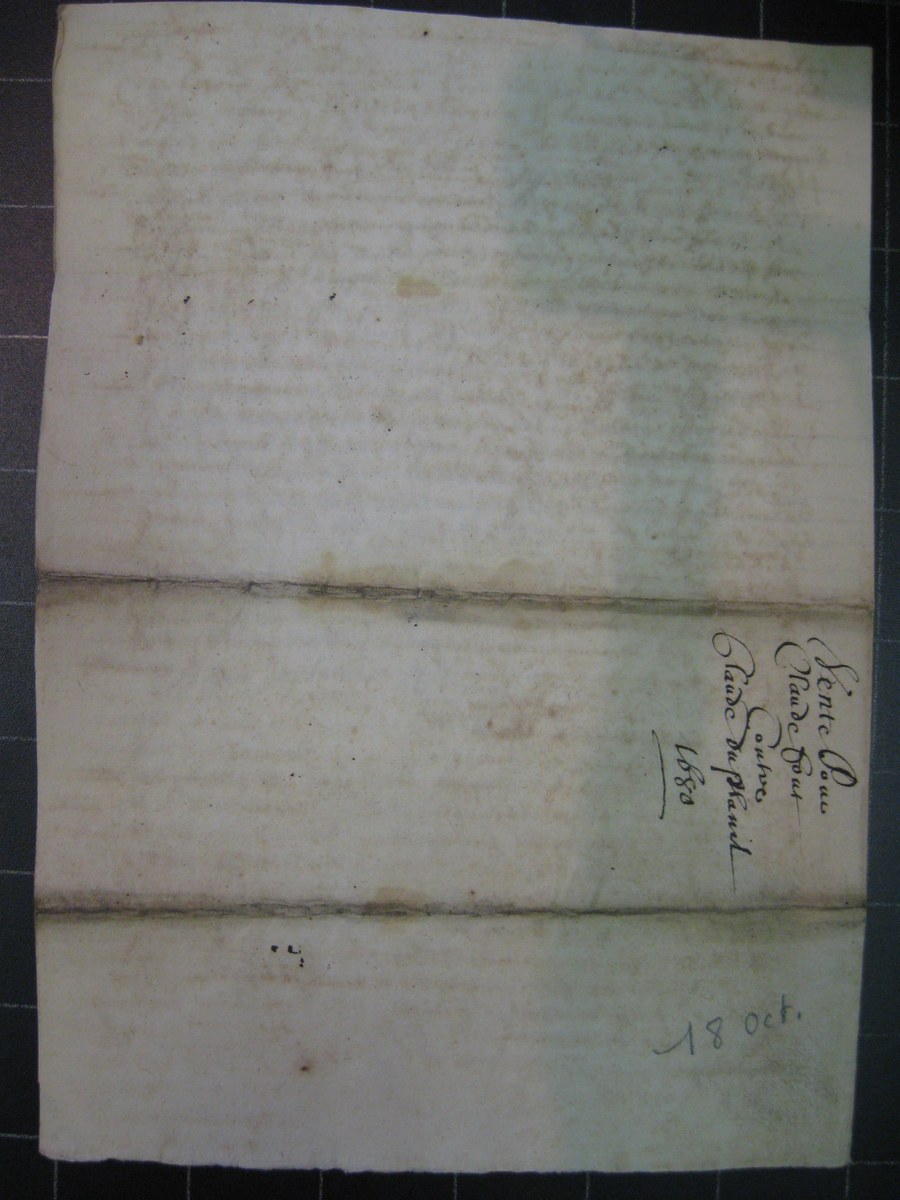 Vente Pour
Claude Font
Contre
Claude du planil
1680
18 oct.